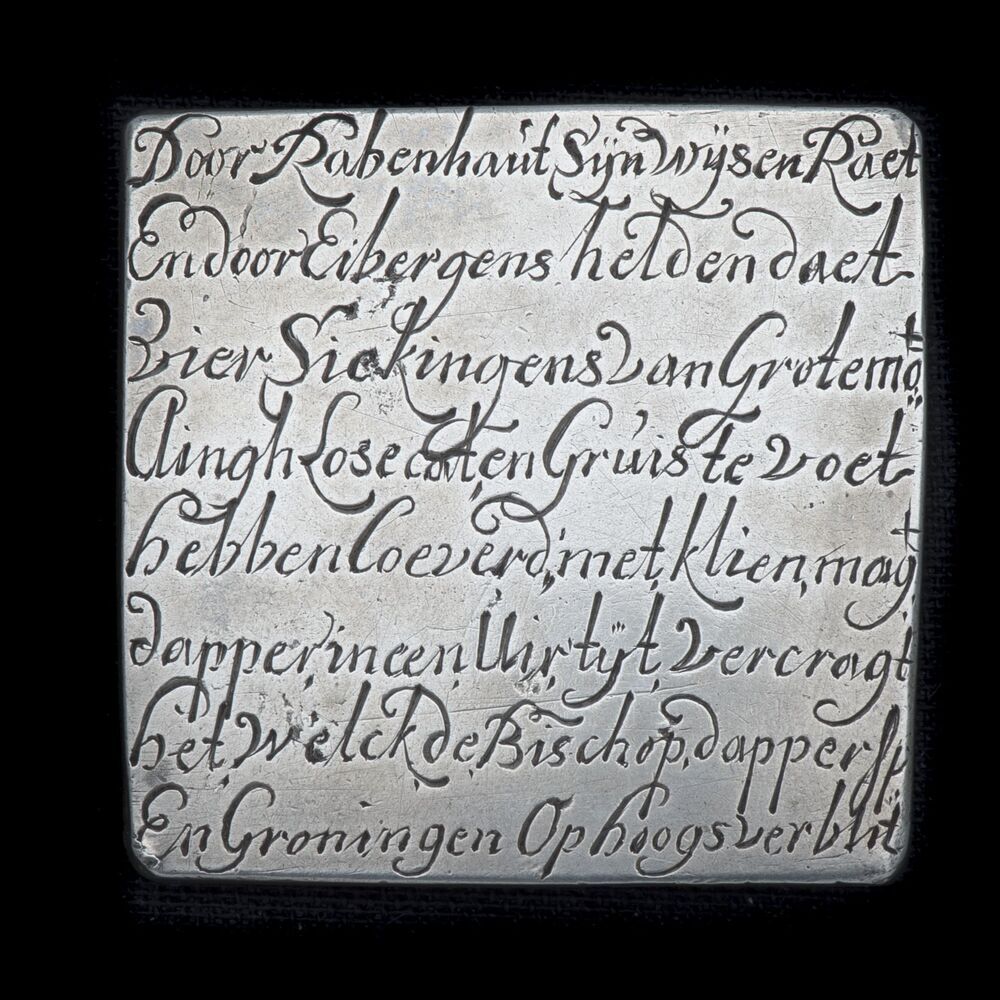 Door Rabenhaut Sijn Wijsen Raet
En door Eibergens helden daet
Vier Siekingens Van Grotemo
Clingh Lose en Gruis te Voet
hebben Coeverd, met, klien, magt
dapper, in een, Uir, tÿt, Vercragt
het, Welck de, Bischop, dapper sp
En Groningen Op hoogs verblit